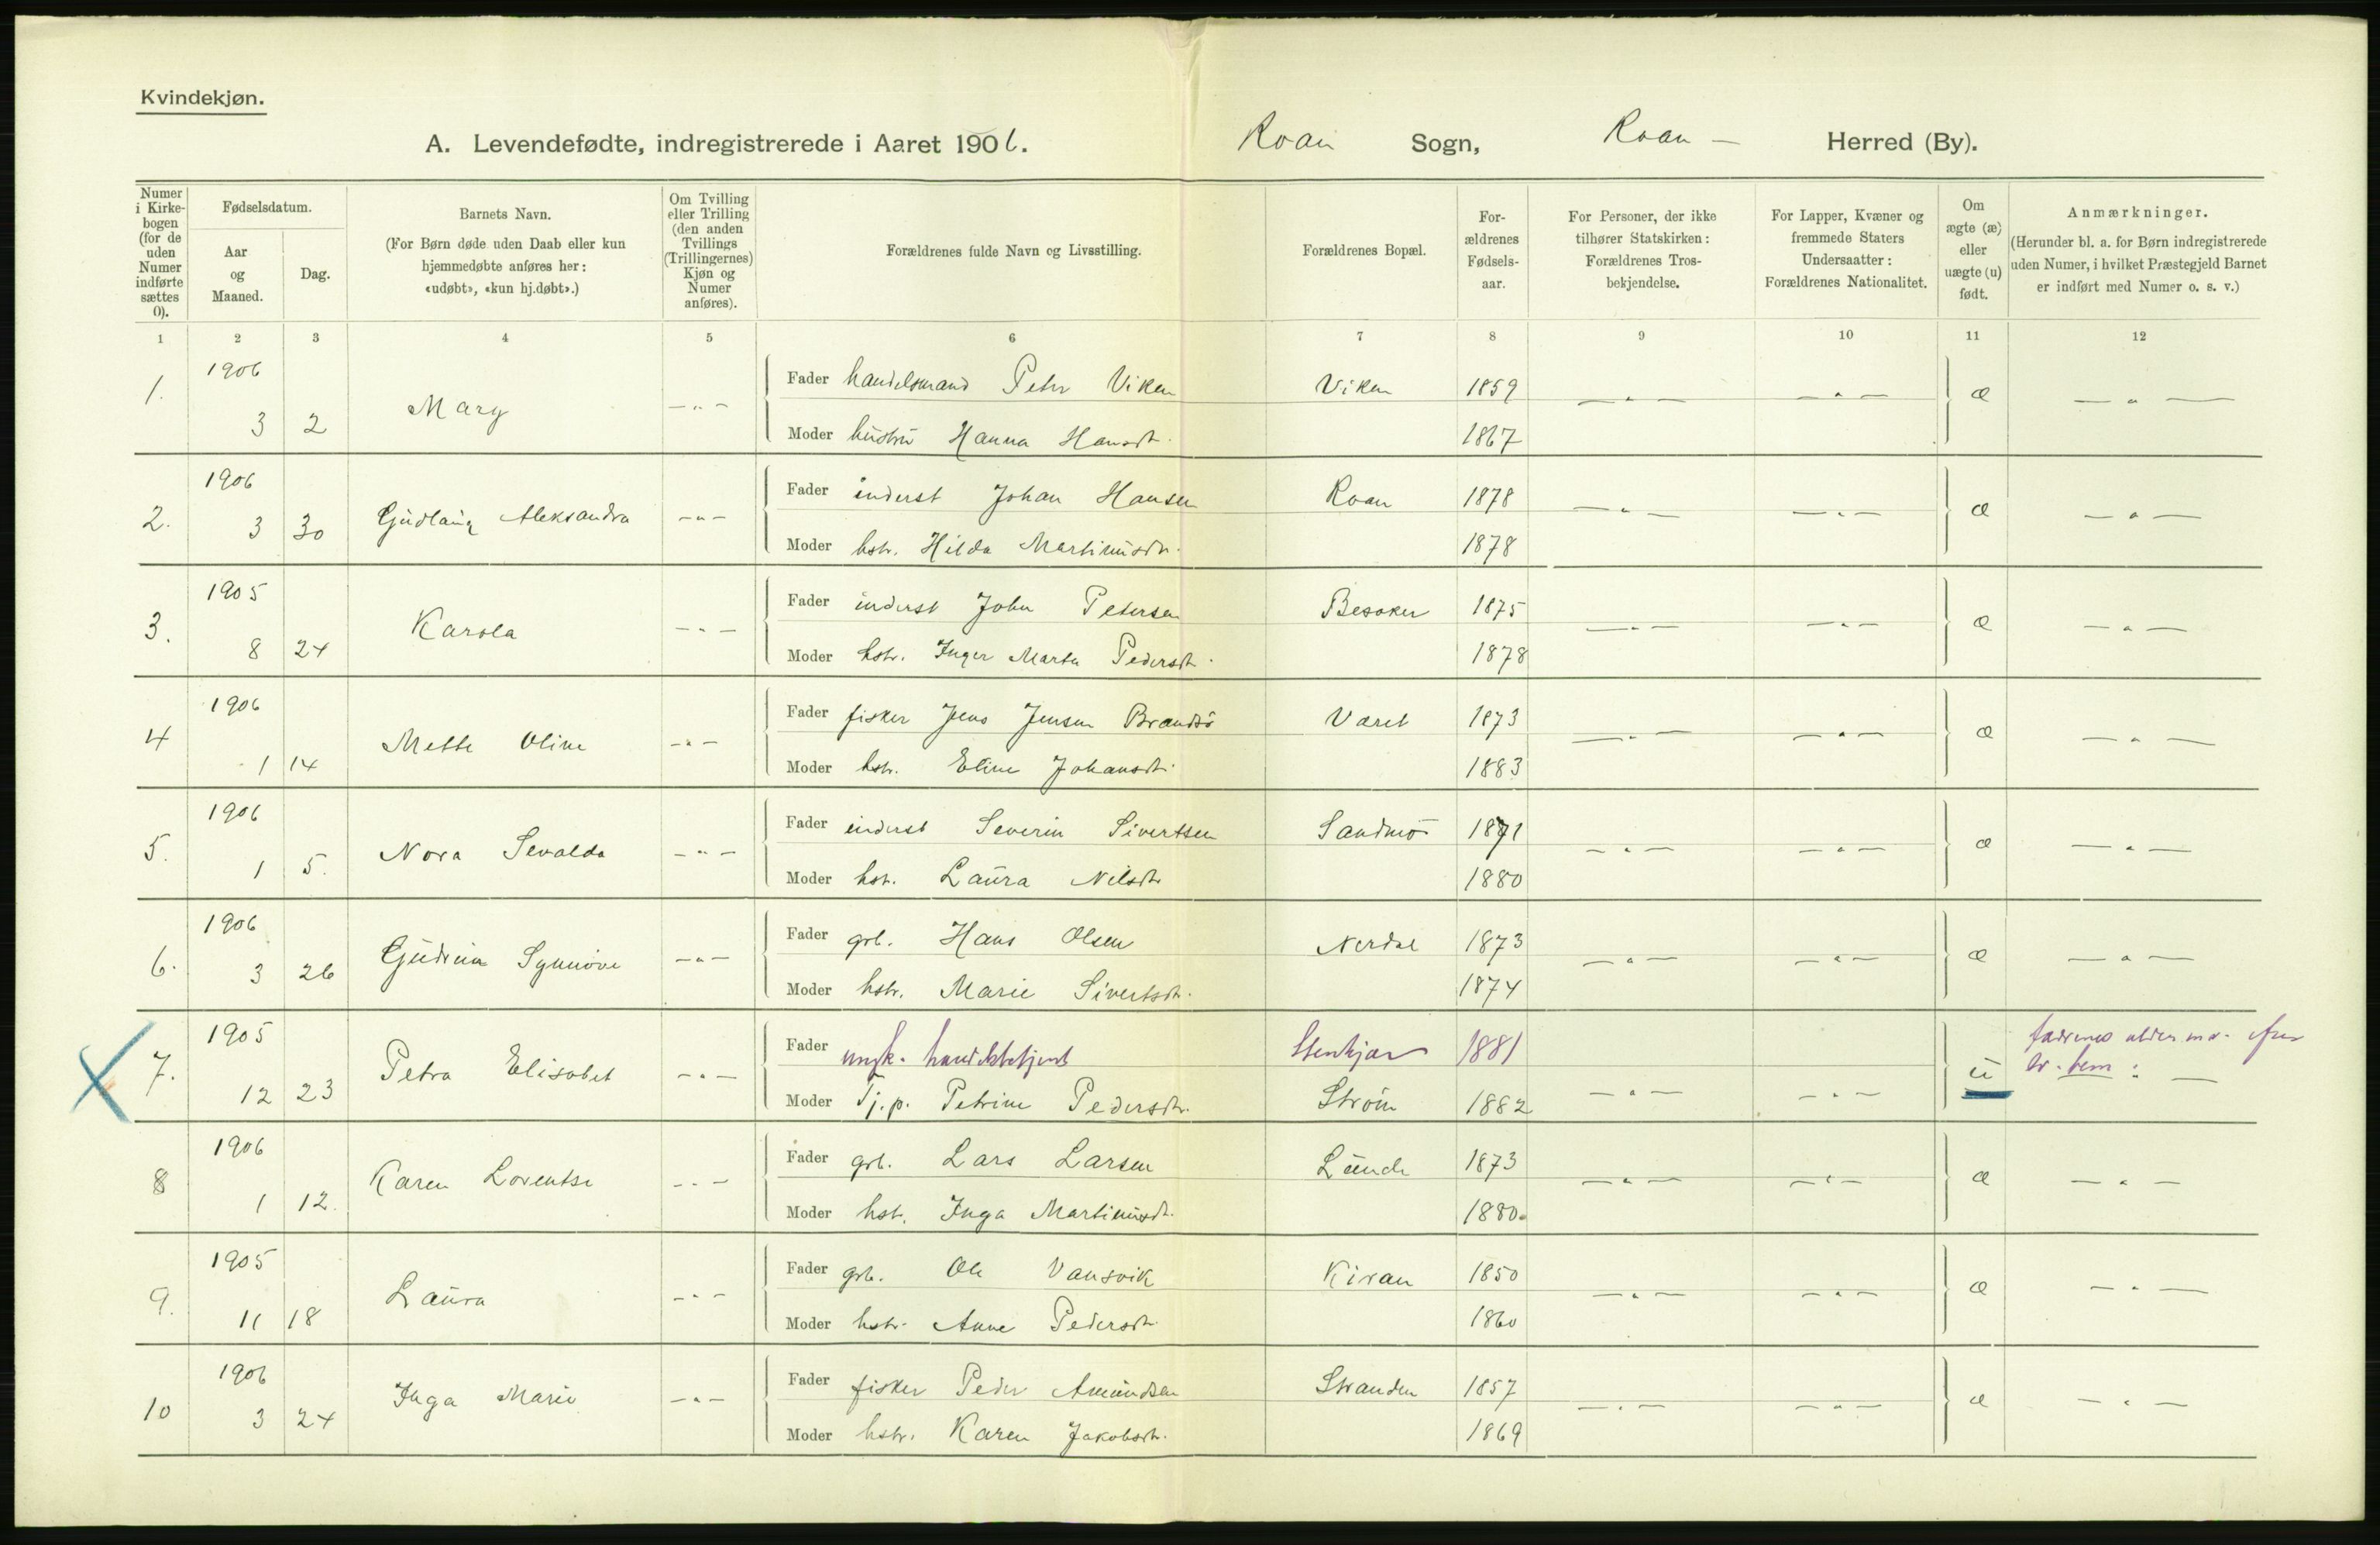 Kvindekjøn.
A. Levendefødte, indregistrerede i Aaret 1906. Roan Sogn, Roan — Herred (By).
Numer i Kirkebogen (for de uden Numer indførte sættes 0).
Fødselsdatum.
Aar og Maaned.
Dag.
Barnets Navn.
(For Børn døde uden Daab eller kun hjemmedøbte anføres her: «udøbt», «kun hj.døbt».)
Om Tvilling eller Trilling (den anden Tvillings (Trillingernes) Kjøn og Numer anføres).
Forældrenes fulde Navn og Livsstilling.
Forældrenes Bopæl.
For-ældrenes Fødsels-aar.
For Personer, der ikke tilhører Statskirken: Forældrenes Tros-bekjendelse.
For Lapper, Kvæner og fremmede Staters Undersaatter: Forældrenes Nationalitet.
Om ægte (æ) eller uægte (u) født.
Anmærkninger.
(Herunder bl. a. for Børn indregistrerede uden Numer, i hvilket Præstegjeld Barnet er indført med Numer o. s. v.)
1 2 3 4 5 6 7 8 9 10 11 12
1. 1906 3 2 Mary —„— Fader handelsmand Peter Viken Viken 1859 —„— —„— æ —„—
Moder hustru Hanna Hansdtr. 1867
2. 1906 3 30 Gudlaug Aleksandra —„— Fader inderst Johan Hansen Roan 1878 —„— —„— æ —„—
Moder hstr. Hilda Martinusdtr. 1878
3. 1905 8 24 Karola —„— Fader inderst John Petersen Besaker 1875 —„— —„— æ —„—
Moder hstr. Inger Marta Pedersdtr. 1878
4 1906 1 14 Mette Oline —„— Fader fisker Jens Jensen Brandsö Været 1873 —„— —„— æ —„—
Moder hstr. Eline Johansdtr. 1883
5. 1906 1 5. Nora Sevalda —„— Fader inderst Severin Sivertsen Sandmo 1871 —„— —„— æ —„—
Moder hst. Laura Nilsdtr 1880
6. 1906 3 26 Gudrun Synnöve —„— Fader grb. Hans Olsen Nerdal 1873 —„— —„— æ —„—
Moder hstr. Marie Sivertsdtr. 1874
7. 1905 12 23 Petra Elisabet —„— Fader ungk. handelsbetjent Stenkjær 1881 u
Moder Tj.p. Petrine Pedersdtr. Ström 1882 —„— —„—
8 1906 1 12. Karen Lorentse —„— Fader grb. Lars Larsen Lunde 1873 —„— —„— æ —„—
Moder hst. Inga Martinusdt. 1880
9. 1905 11 18 Laura —„— Fader grb. Ole Vansvik Kiran 1850 —„— —„— æ —„—
Moder hstr. Anne Pedersdtr. 1860
10 1906 3 24 Inga Marie —„— Fader fisker Peder Amundsen Stranden 1857 —„— —„— æ —„—
Moder hstr. Karen Jakobsdtr. 1869